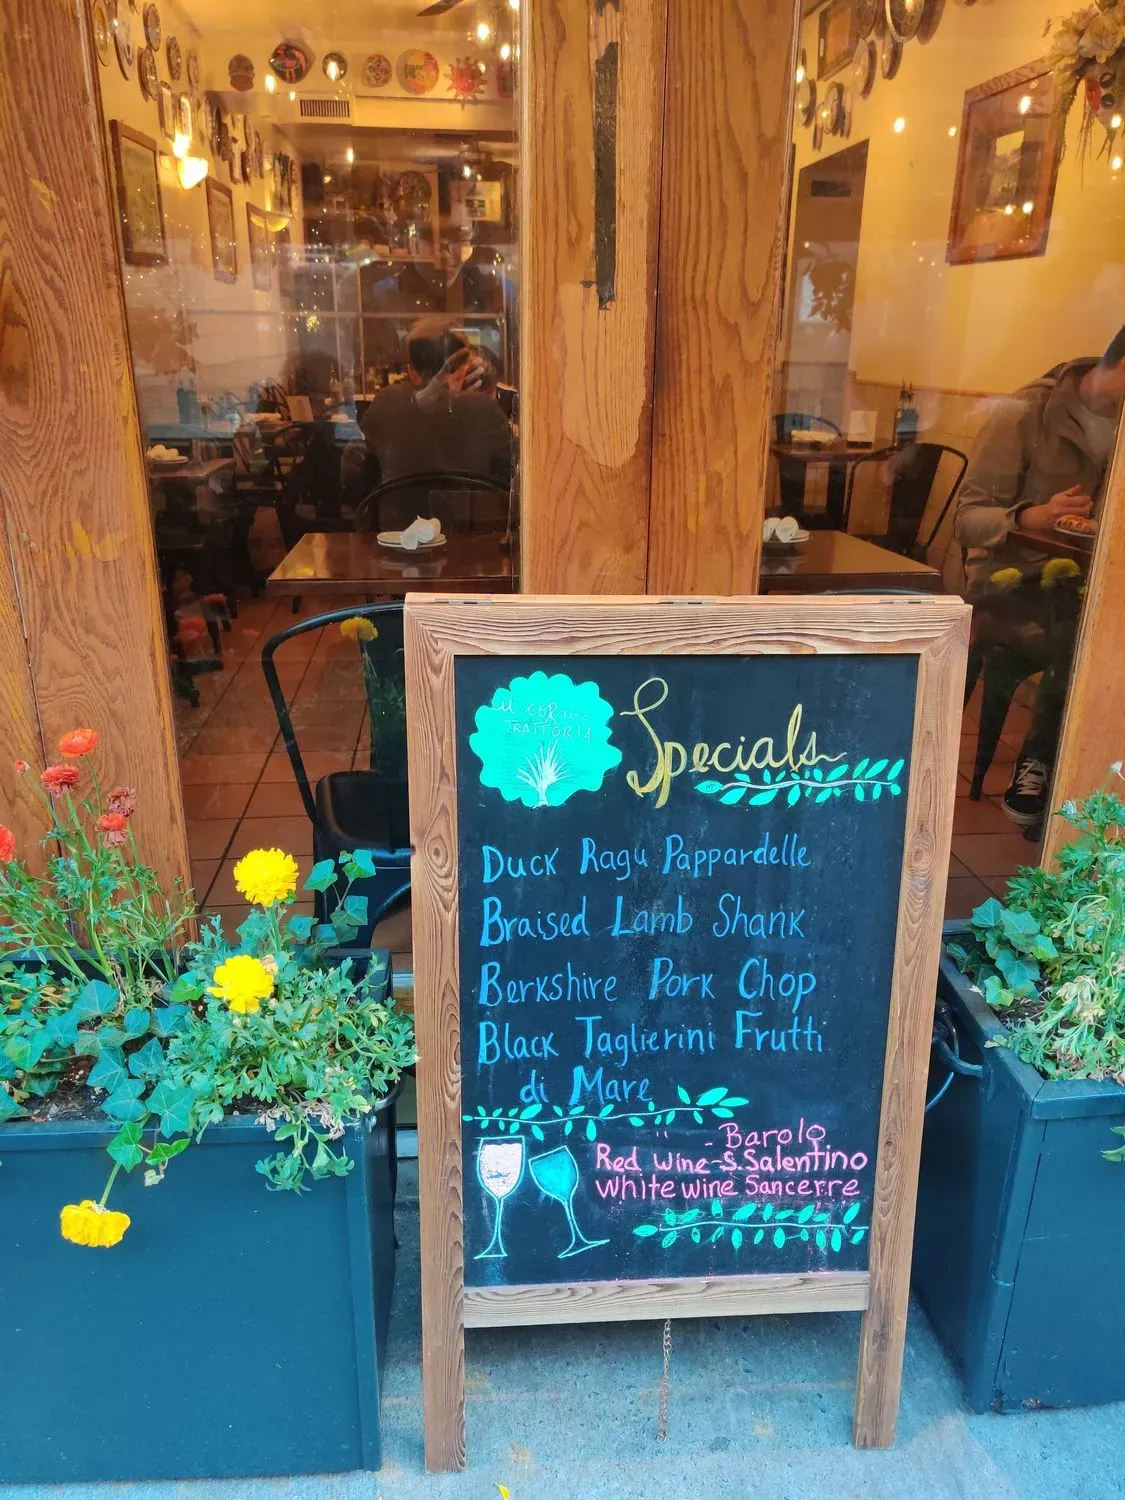 TRATTORIA
Specials
Duck Ragu Pappardelle
Braised Lamb Shank
Berkshire Pork Chop
Black Taglierini Frutti
di Mare
" - Barolo
Red Wine-S.Salentino
White wine Sancerre